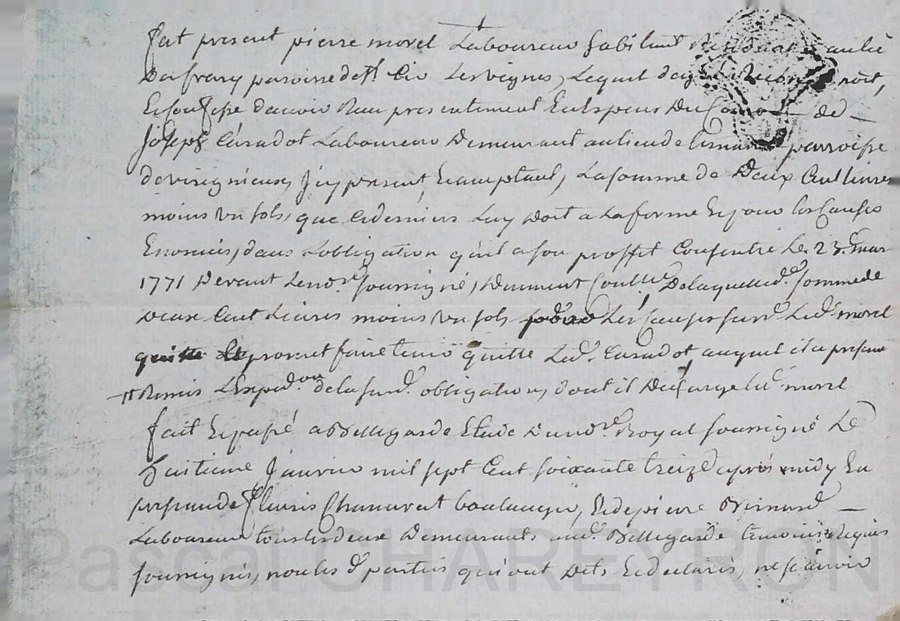 fut present pierre morel Laboureur habitant
paroisse de st Cir Les vignes, Lequel de
Et Confesse davoir Recu presentement En Especes Du Cours de
Joseph Caradot Laboureur Demeurant au lieu de paroisse
de virignieux, Icy present, Lasomme de Deux Cent livres
moins un sols, que cedernier Luy Doit a Laforme Et pour les Causes
Enoncées, dans Lobligation quil a son proffit Consentie Le 23e. mars
1771 Devant Le nore. soussigné, Duement Conllée. De laquelle de. somme de
Deux Cent Livres moins un sols Led. morel
quitte Et promet faire tenir quitte Led. Caradot auquel il a presentement
Remis LExpedon. de la susde. obligation, dont il Decharge led. morel
fait Et passé a Bellegarde Etude Du nore. Royal soussigné Le
huitieme Janvier mil sept Cent soixante treize apres midy En
presence de fleuris Chanavat boulanger, Et de pierre
Laboureur tous les deux Demeurants aud. Bellegarde temoins Requis
soussignés, non les d. parties qui ont Dits Et declarés, ne scavoir
Pascal CHAREYRON